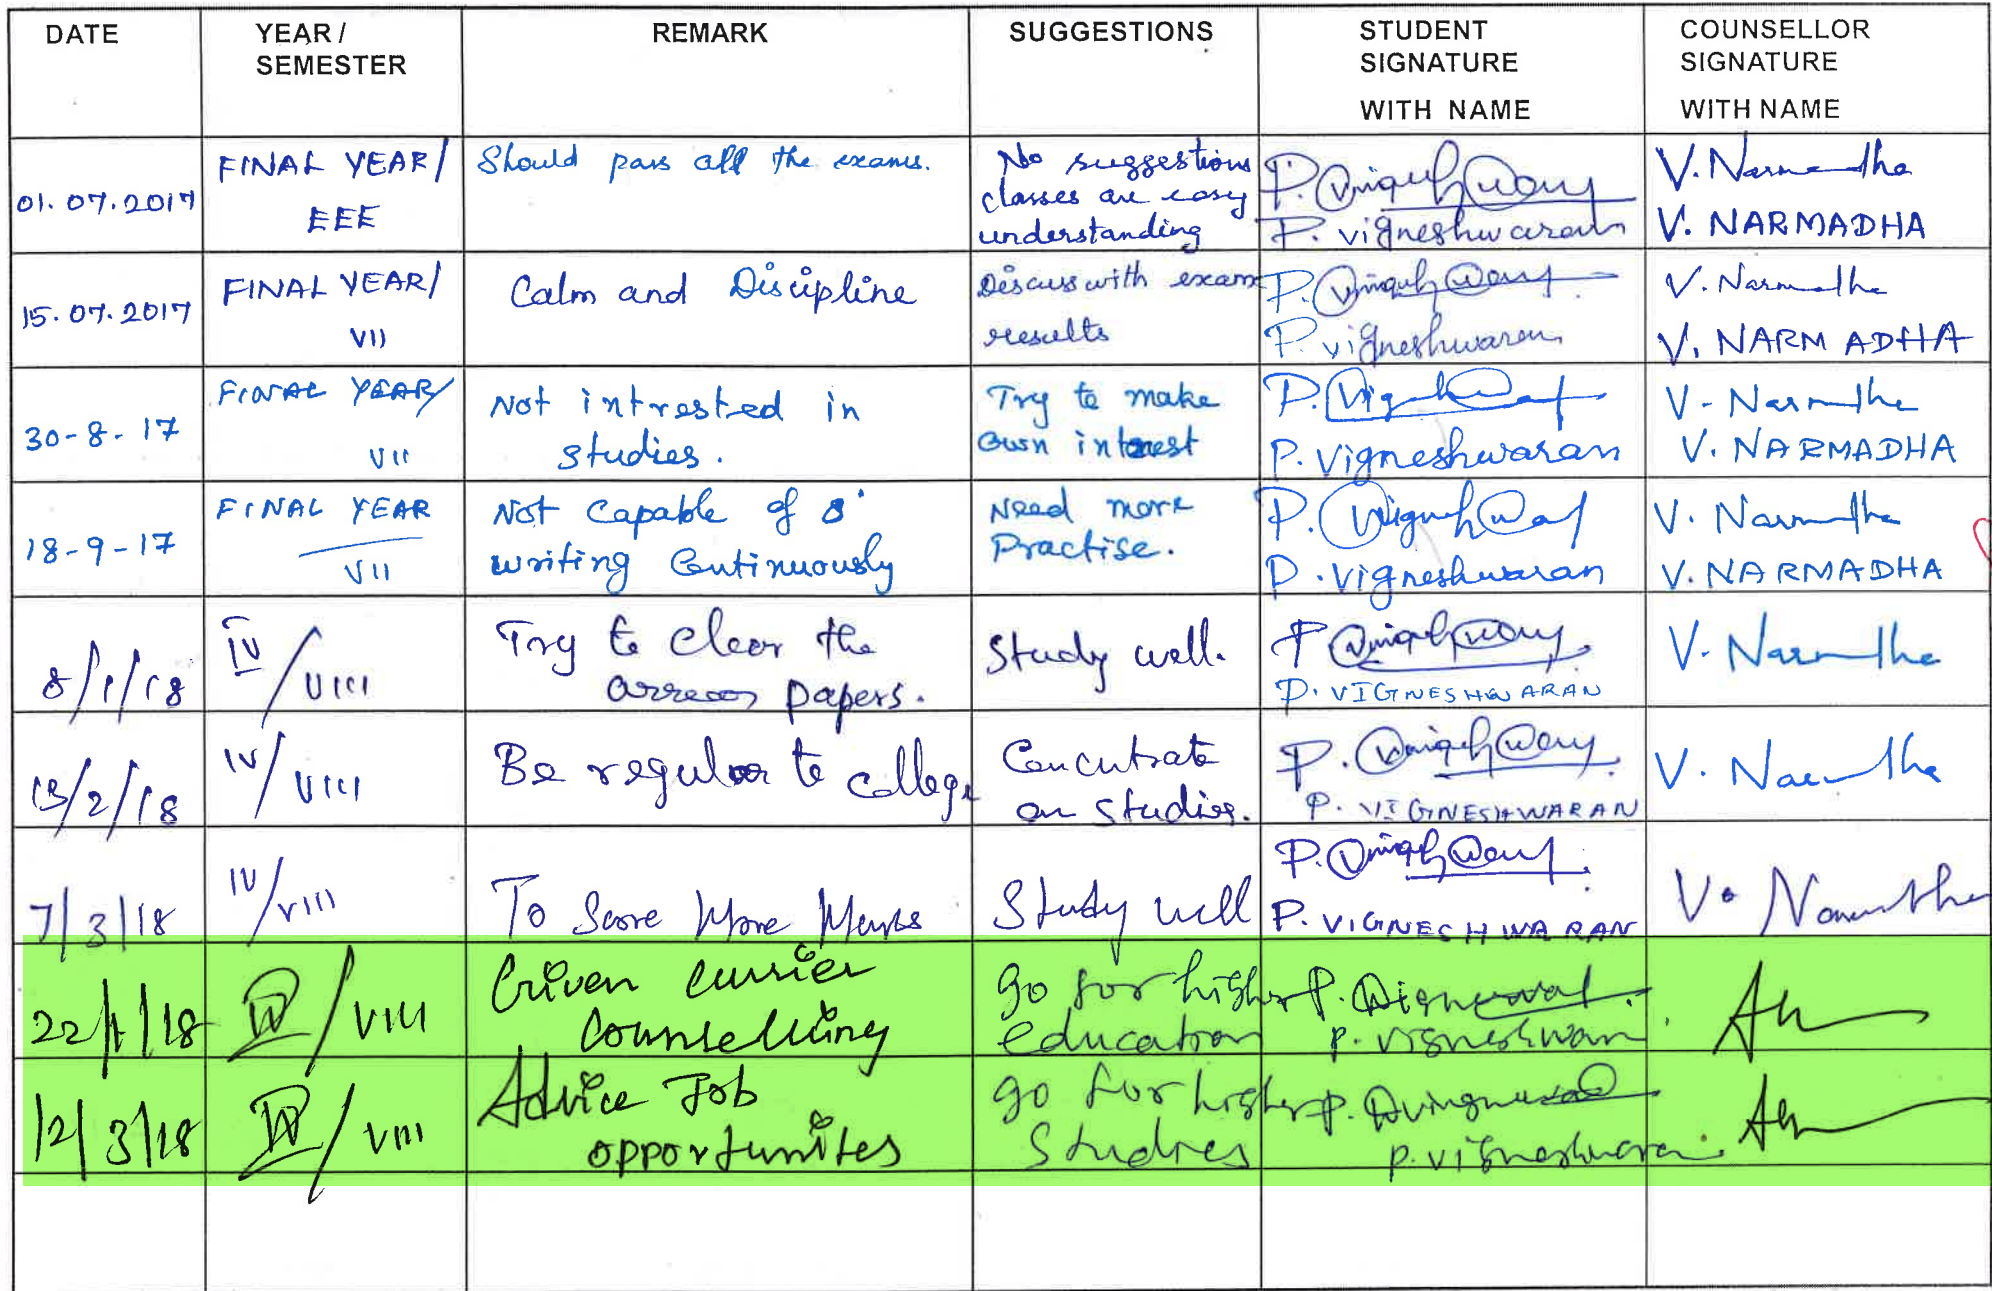 DATE
YEAR /
SEMESTER
REMARK
SUGGESTIONS
STUDENT
SIGNATURE
WITH NAME
COUNSELLOR
SIGNATURE
WITH NAME
01.07.2017
FINAL YEAR/
EEE
Should pass all the exams.
No suggestions
classes are easy
understanding
P. Vigneshwaran
V. Narmadha
V. NARMADHA
15.07.2017
FINAL YEAR/
VII
Calm and Discipline
Discuss with exam
results
P. Vigneshwaran
V. Narmadha
V. NARMADHA
30-8-17
FINAL YEAR/
VII
Not intrested in
studies.
Try to make
own interest
P. Vigneshwaran
V. Narmadha
V. NARMADHA
18-9-17
FINAL YEAR
VII
Not Capable of
writing Continuously
Need more
Practise.
P. Vigneshwaran
V. Narmadha
V. NARMADHA
8/1/18
IV/VIII
Try to clear the
arrear papers.
Study well.
P. VIGNESHWARAN
V. Narmadha
13/2/18
IV/VIII
Be regular to college
Concentrate
on studies.
P. VIGNESHWARAN
V. Narmadha
7/3/18
IV/VIII
To Score More Marks
Study well
P. VIGNESHWARAN
V. Narmadha
22/1/18
IV/VIII
Given currier
Counselling
go for higher
education
P. Vigneshwaran
12/3/18
IV/VIII
Advice Job
opportunites
go for higher
Studies
P. Vigneshwaran